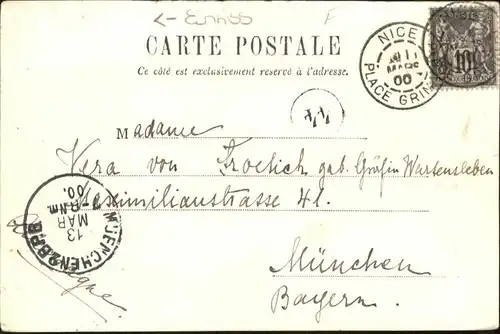 CARTE POSTALE
Ce côté est exclusivement réservé à l'adresse.
NICE
11
MARS
00
PLACE GRIM
10
Madame
Vera von Froelich geb. Gräfin Wartensleben
Maximilianstrasse 41.
München
Bayern.
MUENCHEN 2 B.P.B
13
MAR
Nm.
00.